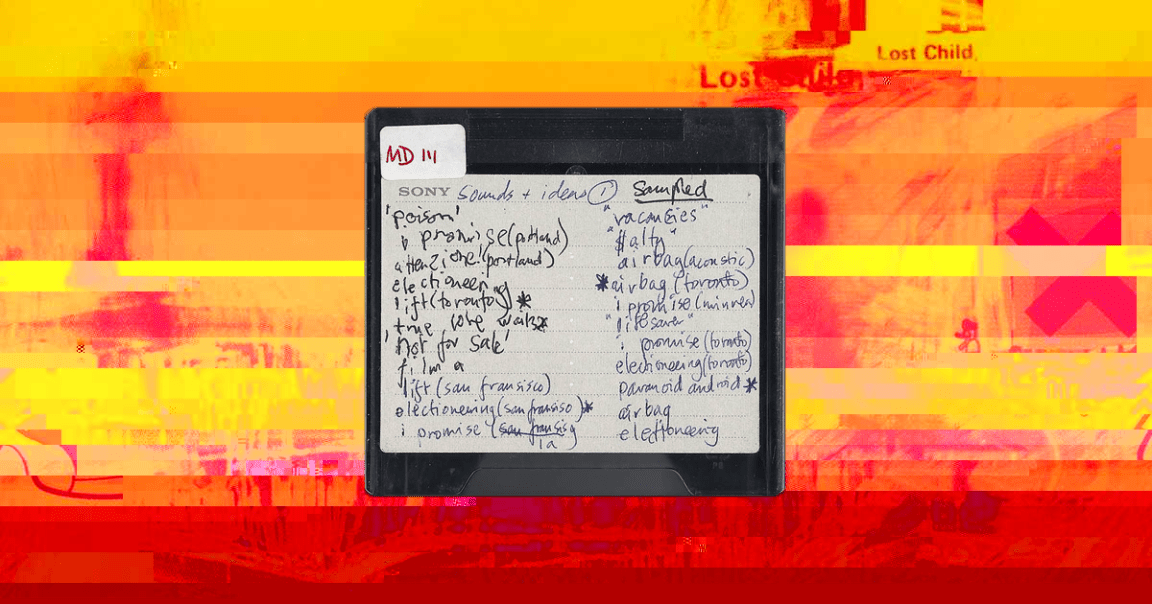 Lost Child
Lost Child
MD 111
SONY sounds + ideas ① Sampled
'poison'
i promise (portland)
attenzione! (portland)
electioneering
lift (toronto) *
true love waits
'not for sale'
lift (san fransisco)
electioneering (san fransiso) *
i promise (san fransis
la)
"vacancies"
airbag (acoustic)
* airbag (toronto)
i promise (minner)
"lifesaver"
i promise (toronto)
electioneering (toronto)
paranoid android *
airbag
electioneering